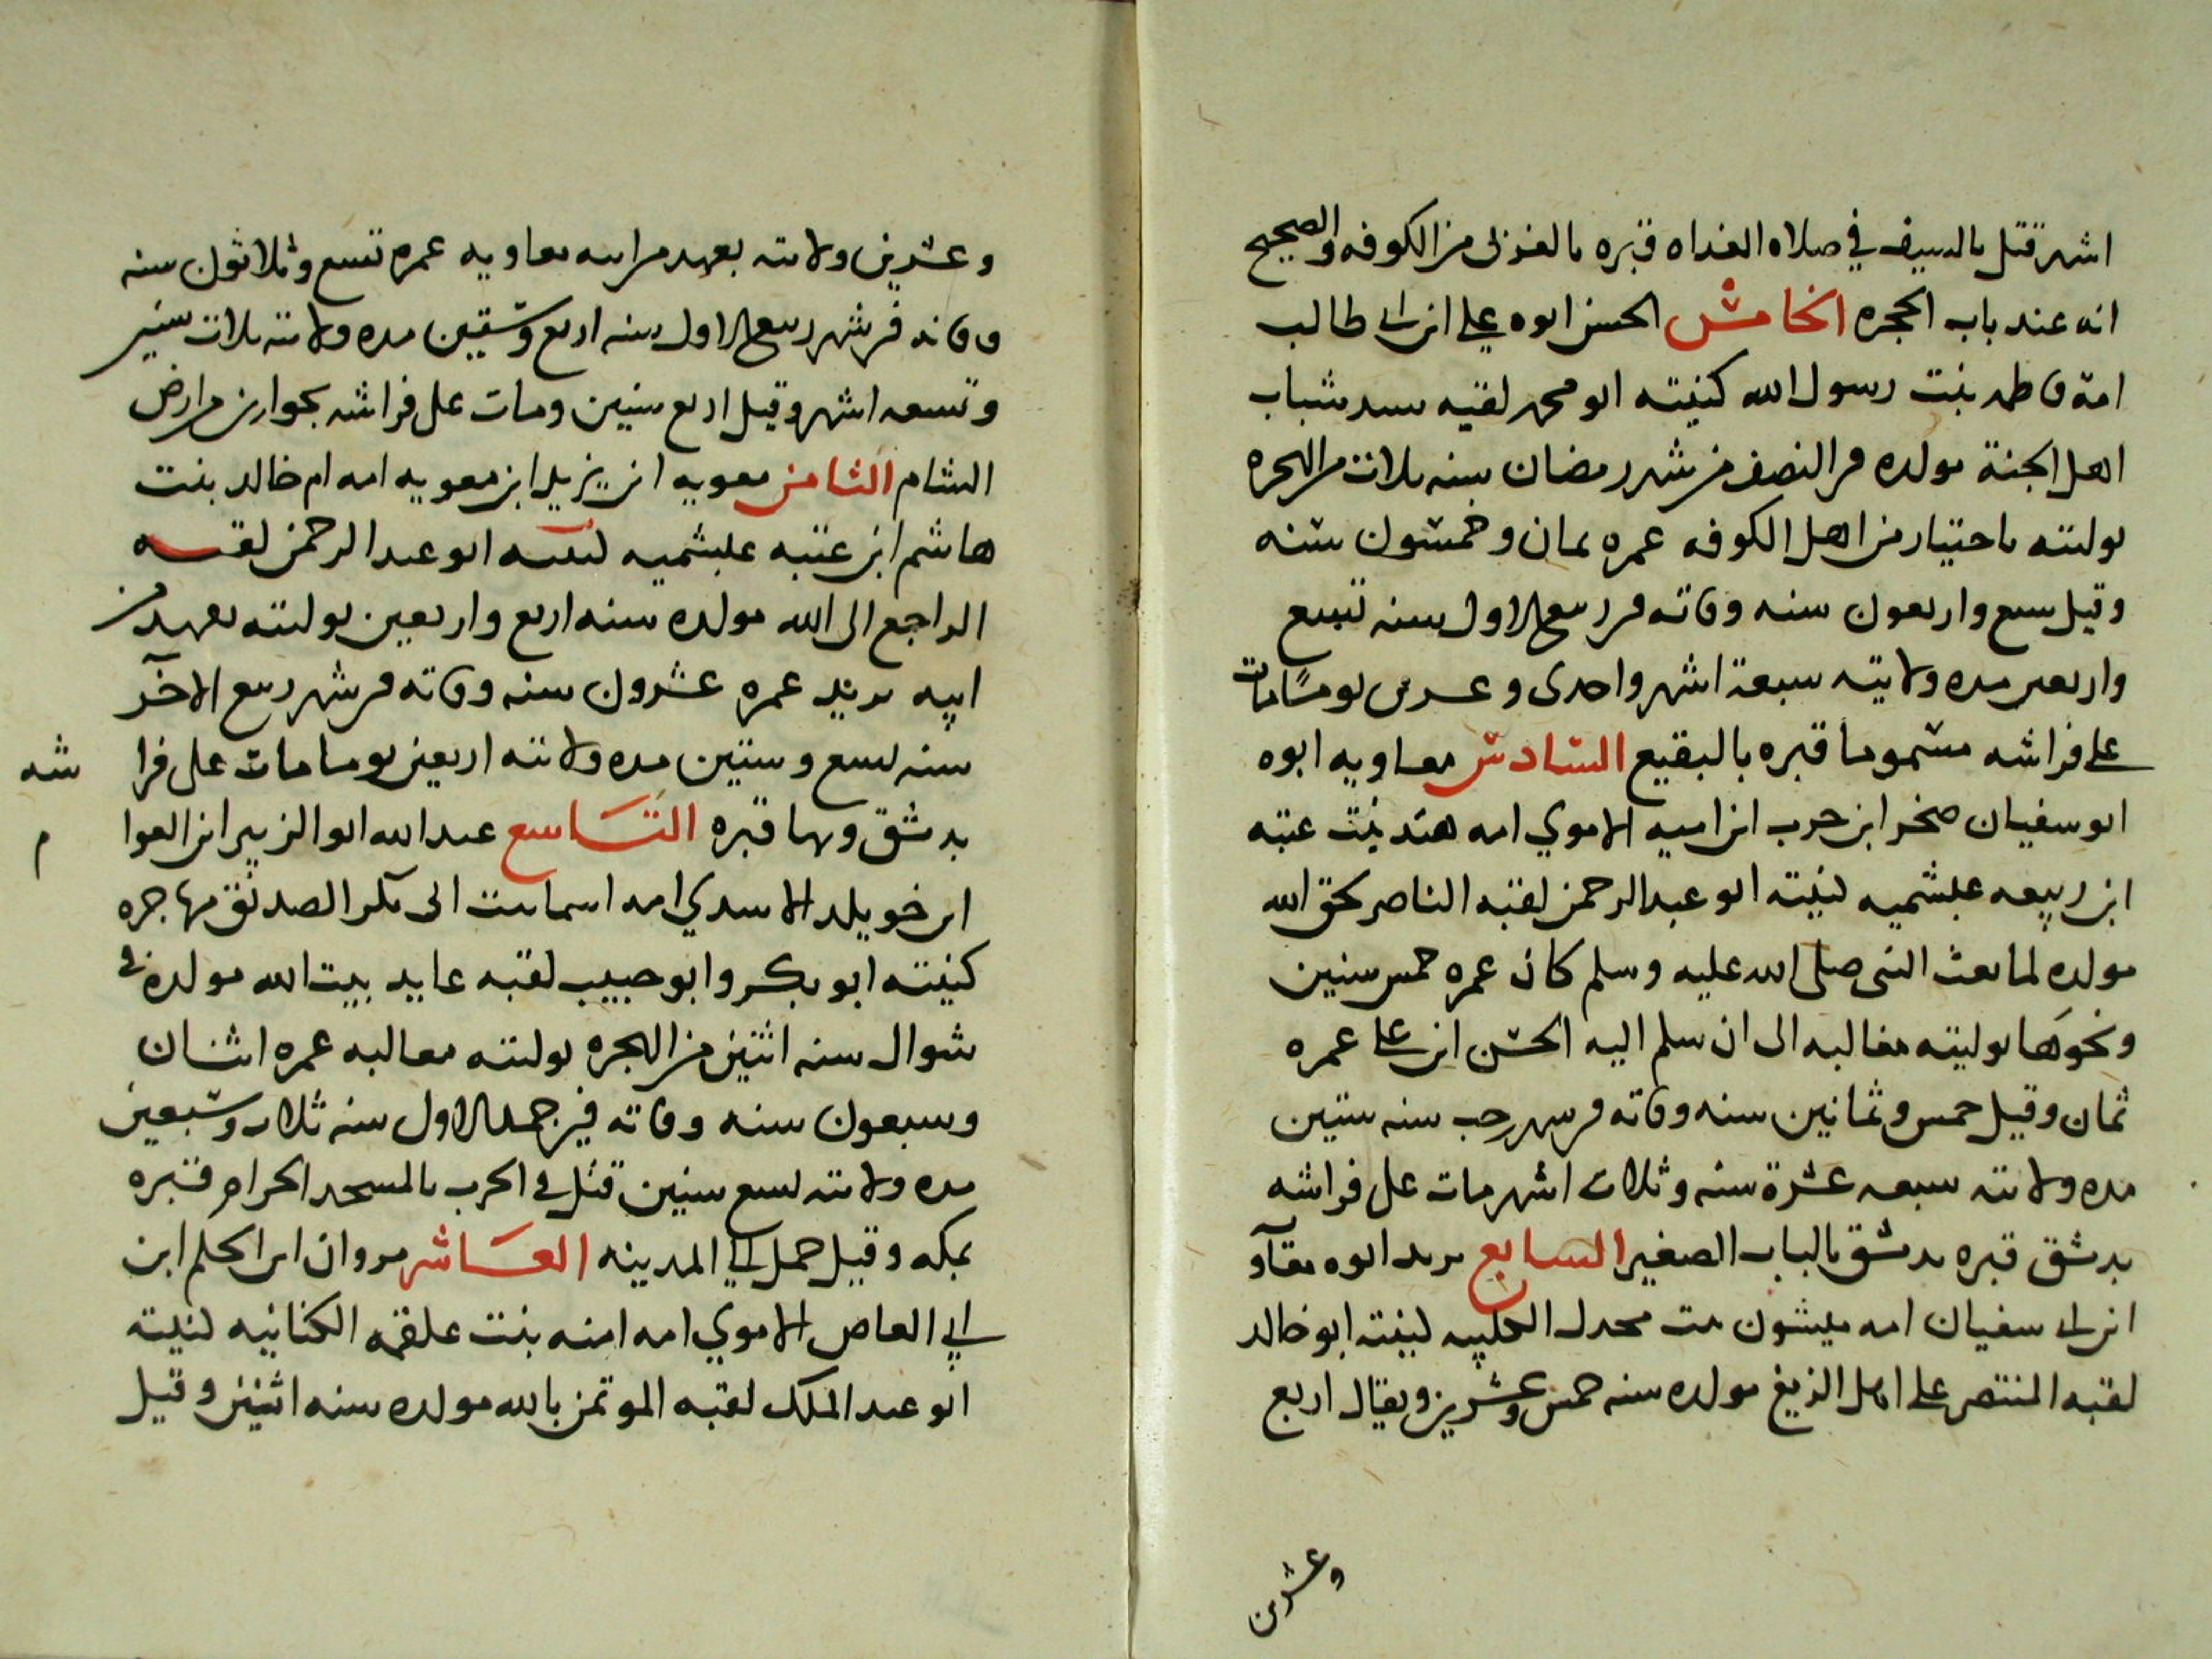 اشهر قتل بالسيف في صلاه الغداه قبره بالغري من الكوفه والصحيح
انه عند باب الحجره الخامس الحسن ابوه علي ابن ابي طالب
امه فاطمه بنت رسول الله كنيته ابو محمد لقبه سيد شباب
اهل الجنة مولده في النصف من شهر رمضان سنه ثلاث من الهجره
توليته باختيار من اهل الكوفه عمره ثمان وخمسون سنه
وقيل سبع واربعون سنه وفاته في ربيع الاول سنه تسع
واربعين مده ولايته سبعة اشهر واحدى وعشرين يوما مات
على فراشه مسموما قبره بالبقيع السادس معاويه ابوه
ابو سفيان صخر ابن حرب ابن اميه الاموي امه هند بنت عتبه
ابن ربيعه عبشميه كنيته ابو عبد الرحمن لقبه الناصر لحق الله
مولده لما بعث النبي صلى الله عليه وسلم كان عمره خمس سنين
ونحوها توليته مغالبه الى ان سلم اليه الحسن ابن علي عمره
ثمان وقيل خمس وثمانين سنه وفاته في شهر رجب سنه ستين
مده ولايته سبعه عشرة سنه وثلاث اشهر مات على فراشه
بدمشق قبره بدمشق بالباب الصغير السابع يزيد ابوه معاو
ابن ابي سفيان امه ميسون بنت بحدل الكلبيه كنيته ابو خالد
لقبه المنتصر على اهل الزيغ مولده سنه خمس وعشرين ويقال اربع
وعشرين
وعشرين ولايته بعهد من ابيه معاويه عمره تسع وثلاثون سنه
وفاته في شهر ربيع الاول سنه اربع وستين مده ولايته ثلاث سنين
وتسعه اشهر وقيل اربع سنين ومات على فراشه بحوارين من ارض
الشام الثامن معويه ابن يزيد ابن معويه امه ام خالد بنت
هاشم ابن عتبه عبشميه كنيته ابو عبد الرحمن لقبه
الراجع الى الله مولده سنه اربع واربعين توليته بعهد من
ابيه يزيد عمره عشرون سنه وفاته في شهر ربيع الاخر
سنه اربع وستين مده ولايته اربعين يوما مات على فرا شه
بدمشق وبها قبره التاسع عبد الله ابو الزبير ابن العوا م
ابن خويلد الاسدي امه اسما بنت ابي بكر الصديق مهاجره
كنيته ابو بكر وابو حبيب لقبه عايد بيت الله مولده في
شوال سنه اثنين من الهجره توليته مغالبه عمره اثنان
وسبعون سنه وفاته في جمد الاول سنه ثلاث وسبعين
مده ولايته تسع سنين قتل في الحرب بالمسجد الحرام قبره
بمكه وقيل حمل الى المدينه العاشر مروان ابن الحكم ابن
ابي العاص الاموي امه امنه بنت علقمه الكنانيه كنيته
ابو عبد الملك لقبه الموتمن بالله مولده سنه اثنين وقيل